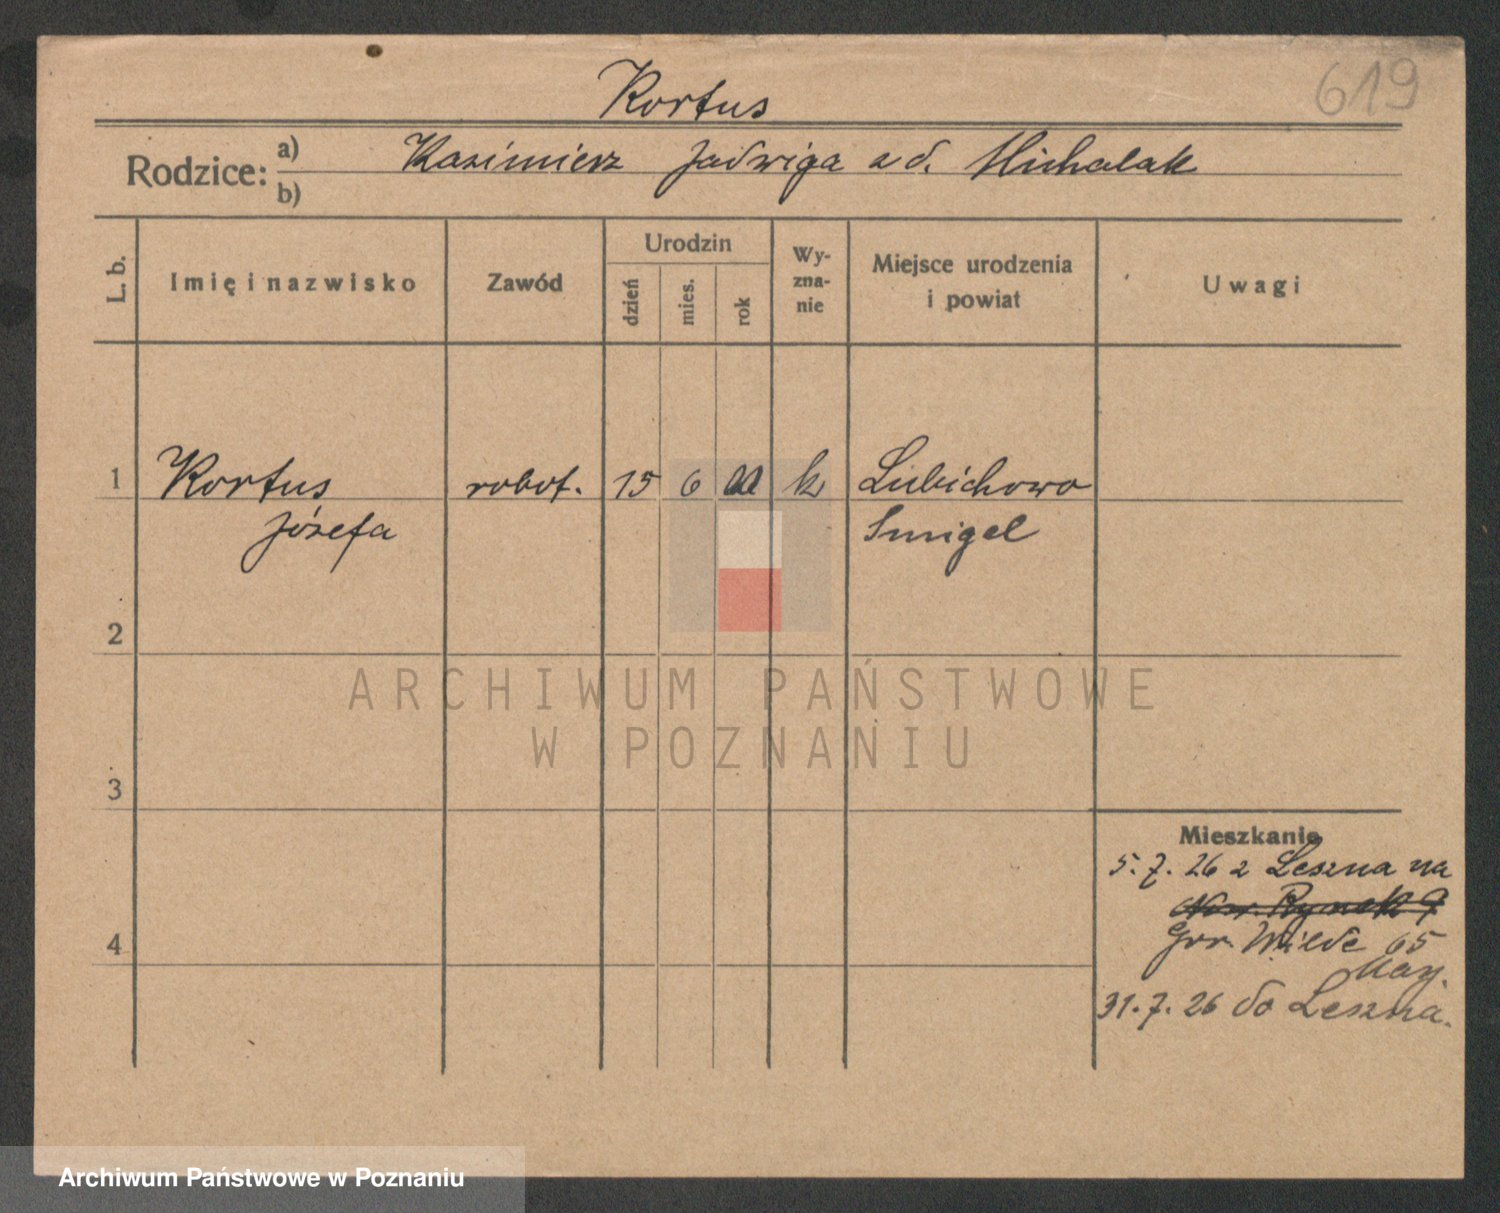 619
Kortus
Rodzice: a) Kazimierz Jadwiga z d. Michalak
b)
L. b.
Imię i nazwisko
Zawód
Urodzin
dzień
mies.
rok
Wy-
zna-
nie
Miejsce urodzenia
i powiat
Uwagi
1 Kortus robot. 15 6 k Lubichowo
Józefa Smigel
2
ARCHIWUM PAŃSTWOWE
W POZNANIU
3
Mieszkanie
5.7.26 z Leszna na
Now. Rynek 9
4
Grr. Wilde 65
31.7.26 do Leszna.
Archiwum Państwowe w Poznaniu